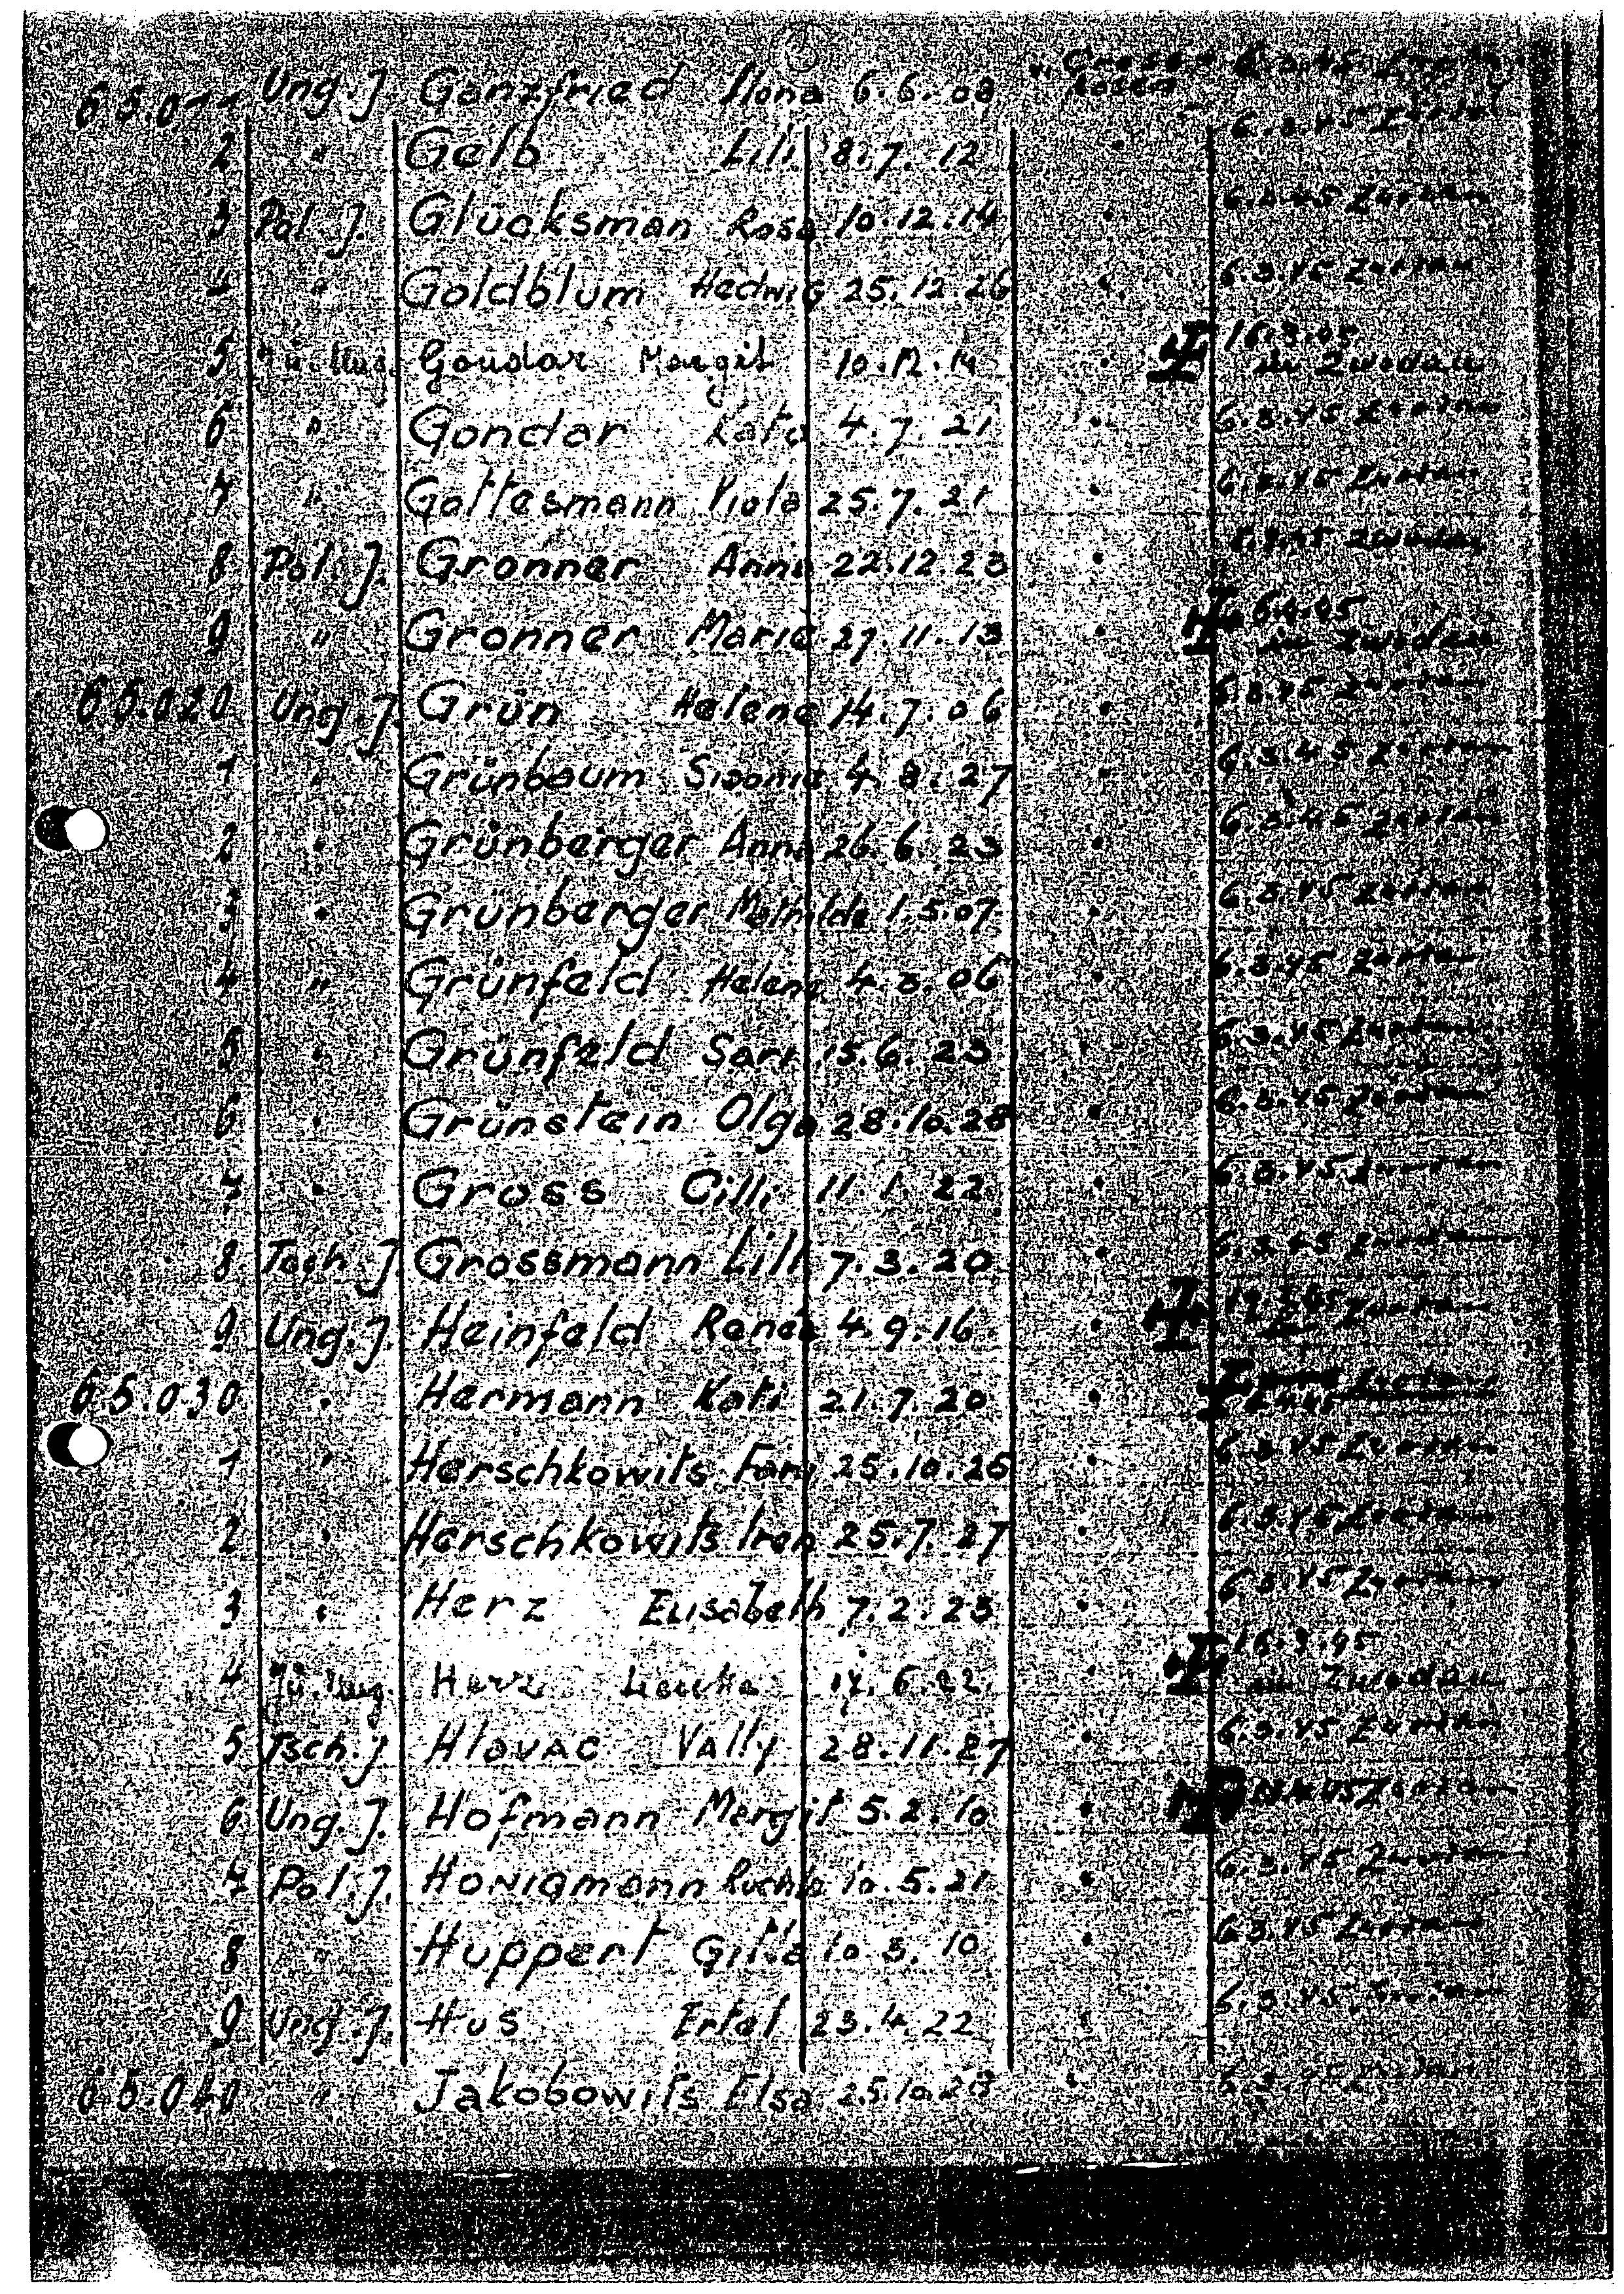 65.011 Ung. J. Ganzfried Ilona 6.6.08 v. Gross-Rosen 6.3.45
2 " Gelb Lili 8.7.12 " 6.3.45 Zwodau
3 Pol. J. Glücksman Rosa 10.12.14 " 6.3.45 Zwodau
4 " Goldblum Hedwig 25.12.26 " 6.3.45 Zwodau
5 Jü. Ung. Gondar Margit 10.12.14 " 16.3.45 in Zwodau
6 " Gondar Kata 4.7.21 " 6.3.45 Zwodau
7 " Gottesmann Viola 25.7.21 " 6.3.45 Zwodau
8 Pol. J. Gronner Anna 22.12.23 " Zwodau
9 " Gronner Maria 27.11.13 " in Zwodau
65.020 Ung. J. Grün Helene 14.7.06 " 6.3.45 Zwodau
1 " Grünbaum Sidonia 4.8.27 " 6.3.45 Zwodau
2 " Grünberger Anna 26.6.23 " 6.3.45 Zwodau
3 " Grünberger Mathilde 1.5.07 " 6.3.45 Zwodau
4 " Grünfeld Helene 4.3.06 " 6.3.45 Zwodau
5 " Grünfeld Sari 15.6.23 " 6.3.45 Zwodau
6 " Grünstein Olga 28.10.28 " 6.3.45 Zwodau
7 " Gross Cilli 11.1.22 " 6.3.45 Zwodau
8 Tsch. J. Grossmann Lili 7.3.20 " 6.3.45 Zwodau
9 Ung. J. Heinfeld Renée 4.9.16 " Zwodau
65.030 " Hermann Kati 21.7.20 " Zwodau
1 " Herschkowits Fani 25.10.25 " 6.3.45 Zwodau
2 " Herschkowits Iren 25.7.27 " 6.3.45 Zwodau
3 " Herz Elisabeth 7.2.23 " 6.3.45 Zwodau
4 Jü. Ung. Herz 6.22 " 16.3.45 in Zwodau
5 Tsch. J. Hlavac Vally 28.11.27 " 6.3.45 Zwodau
6 Ung. J. Hofmann Mergit 5.2.10 " Zwodau
7 Pol. J. Honigmann Ruchla 10.5.21 " 6.3.45 Zwodau
8 " Huppert Gitla 10.3.10 " 6.3.45 Zwodau
9 Ung. J. Hus Ertel 23.4.22 " 6.3.45 Zwodau
65.040 " Jakobowits Elsa 25.10.28 " 6.3.45 Zwodau